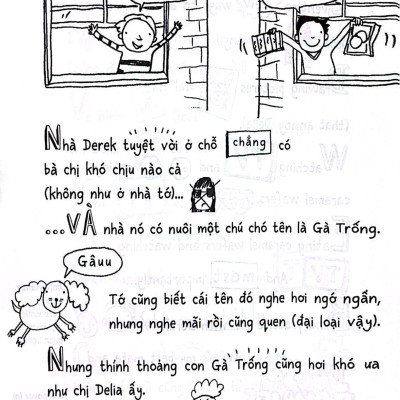 Nhà Derek tuyệt vời ở chỗ chẳng có
bà chị khó chịu nào cả
(không như ở nhà tớ)...
...VÀ nhà nó có nuôi một chú chó tên là Gà Trống.
Gâuu
Tớ cũng biết cái tên đó nghe hơi ngớ ngẩn,
nhưng nghe mãi rồi cũng quen (đại loại vậy).
Nhưng thỉnh thoảng con Gà Trống cũng hơi khó ưa
như chị Delia ấy.